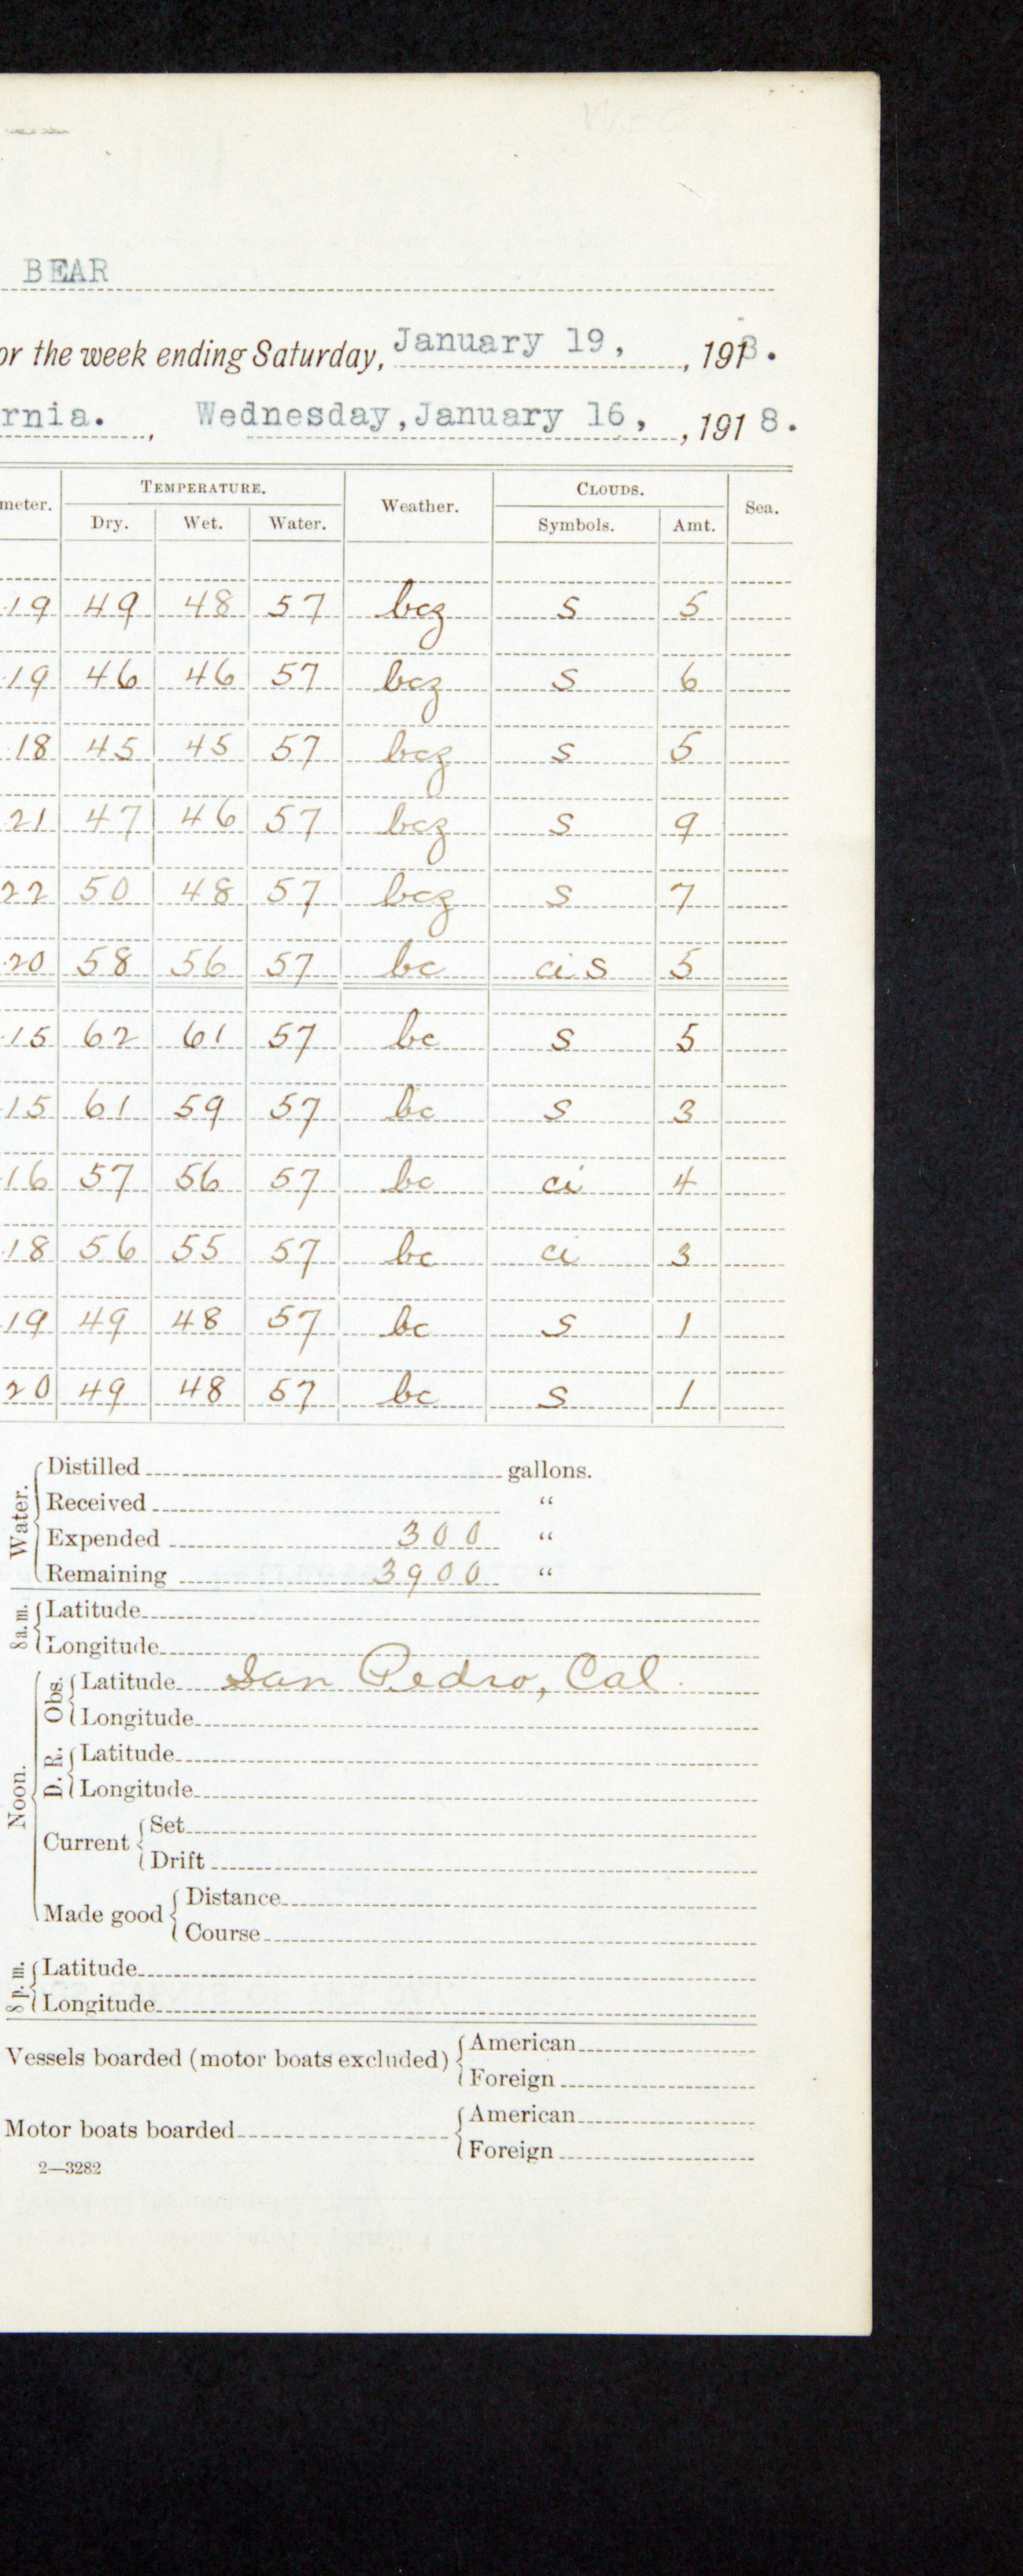 BEAR
or the week ending Saturday, January 19, , 1918.
rnia. , Wednesday, January 16, , 191 8.
meter. TEMPERATURE. Weather. CLOUDS. Sea.
Dry. Wet. Water. Symbols. Amt.
.19 49 48 57 bcz s 5
.19 46 46 57 bcz s 6
.18 45 45 57 bcz s 5
21 47 46 57 bcz s 9
22 50 48 57 bcz s 7
.20 58 56 57 bc ci s 5
.15 62 61 57 bc s 5
.15 61 59 57 bc s 3
16 57 56 57 bc ci 4
.18 56 55 57 bc ci 3
.19 49 48 57 bc s 1
20 49 48 57 bc s 1
Water.
Distilled gallons.
Received "
Expended 300 "
Remaining 3900 "
8 a.m.
Latitude
Longitude
Noon.
Obs.
Latitude San Pedro, Cal.
Longitude
D. R.
Latitude
Longitude
Current
Set
Drift
Made good
Distance
Course
8 p.m.
Latitude
Longitude
Vessels boarded (motor boats excluded)
American
Foreign
Motor boats boarded
American
Foreign
2—3282